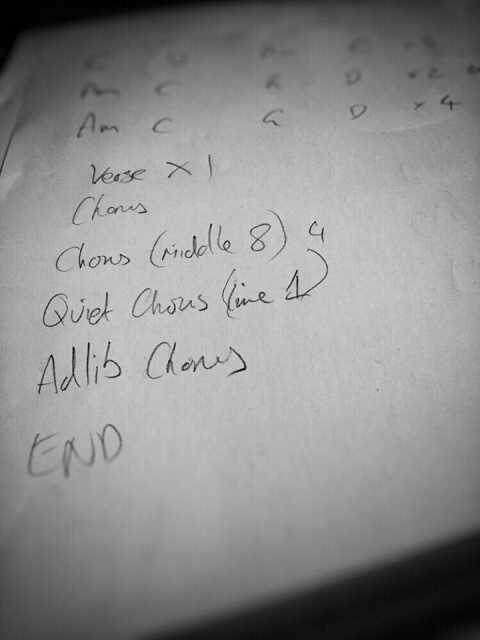 Am C G D x 2
Am C G D x 4
Verse x 1
Chorus
Chorus (middle 8) 4
Quiet Chorus (line 1)
Adlib Chorus
END